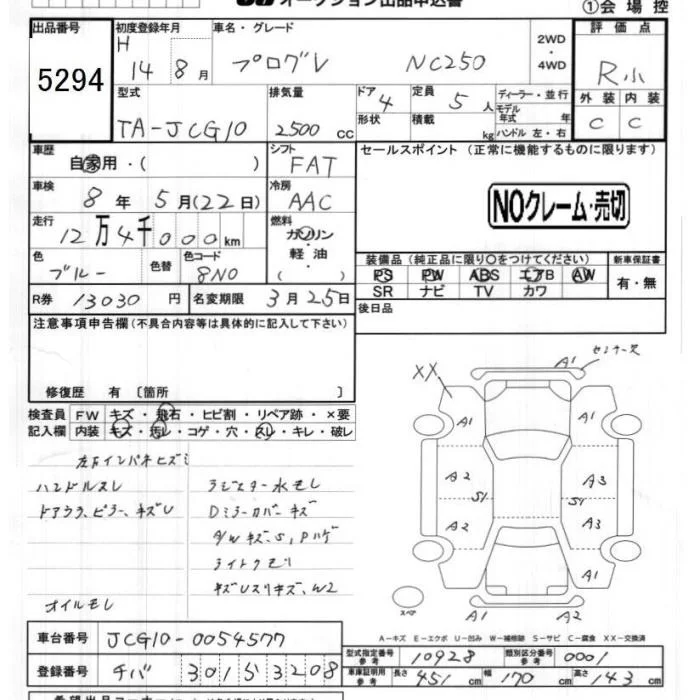 オークション出品申込書
①会場控
出品番号
5294
初度登録年月
H 14 8 月
車名・グレード
プログレ NC250
2WD
・
4WD
評価点
R小
型式
TA-JCG10
排気量
2500 CC
ドア 4
形状
定員 5 人
積載 kg
ディーラー・並行
モデル年式 年
ハンドル 左・右
外装 内装
C C
車歴
自家用・( )
シフト
FAT
セールスポイント (正常に機能するものに限ります)
車検
8 年 5 月(22日)
冷房
AAC
NOクレーム・売切
走行
12万4千000km
燃料
ガソリン
・
軽油
( )
色
ブルー
色替
色コード
8N0
装備品 (純正品に限り○をつけてください)
新車保証書
PS PW ABS エアB AW
SR ナビ TV カワ
有・無
R券 13030 円
名変期限 3月25日
後日品
注意事項申告欄(不具合内容等は具体的に記入して下さい)
修復歴 有 〔箇所 〕
検査員記入欄
FW キズ・飛石・ヒビ割・リペア跡・×要
内装 キズ・汚レ・コゲ・穴・スレ・キレ・破レ
ハンドルスレ
ラジエター水モレ
ドアウラ、ピラー、キズU
Dミラーカバーキズ
A/Wキズ、S、Pハゲ
ライトクモリ
オイルモレ
A1
XX
A1 A1
A2 A3
S1 S1
A2 A3
A1
スペア
A1 A2
A-キズ E-エクボ U-凹み W-補修跡 S-サビ C-腐食 XX-交換済
車台番号 JCG10-0054577
型式指定番号 参考 10928
類別区分番号 参考 0001
登録番号 チバ 301ら3208
車庫証明用 参考 長さ 451 cm 幅 170 cm 高さ 143 cm